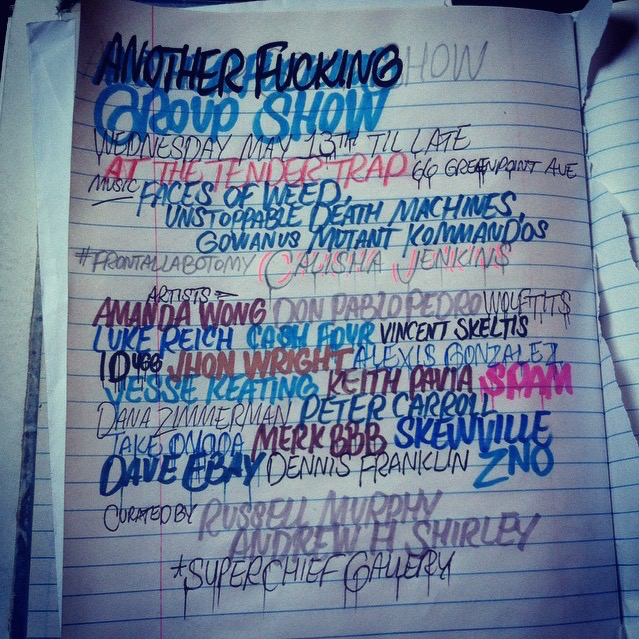 ANOTHER FUCKING SHOW
GROUP SHOW
WEDNESDAY MAY 13TH TIL LATE
AT THE TENDER TRAP 66 GREENPOINT AVE
MUSIC FACES OF WEED,
UNSTOPPABLE DEATH MACHINES,
GOWANUS MUTANT KOMMANDOS
#FRONTALLABOTOMY CALISHA JENKINS
ARTISTS
AMANDA WONG DON PABLO PEDRO WOLFTITS
LUKE REICH CASH FOUR VINCENT SKELTIS
JHON WRIGHT ALEXIS GONZALEZ
JESSE KEATING KEITH PAVIA SPAM
DANA ZIMMERMAN PETER CARROLL
JAKE ONODA MERK BBB SKEWVILLE
DAVE EBAY DENNIS FRANKLIN ZNO
CURATED BY RUSSELL MURPHY
ANDREW H SHIRLEY
#SUPERCHIEF GALLERY